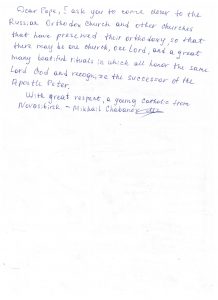 Dear Pope, I ask you to come closer to the
Russian Orthodox Church and other churches
that have preserved their orthodoxy, so that
there may be one church, one Lord, and a great
many beautiful rituals in which all honor the same
Lord God and recognize the successor of the
Apostle Peter.
With great respect, a young Catholic from
Novosibirsk. - Mikhail Chabanov